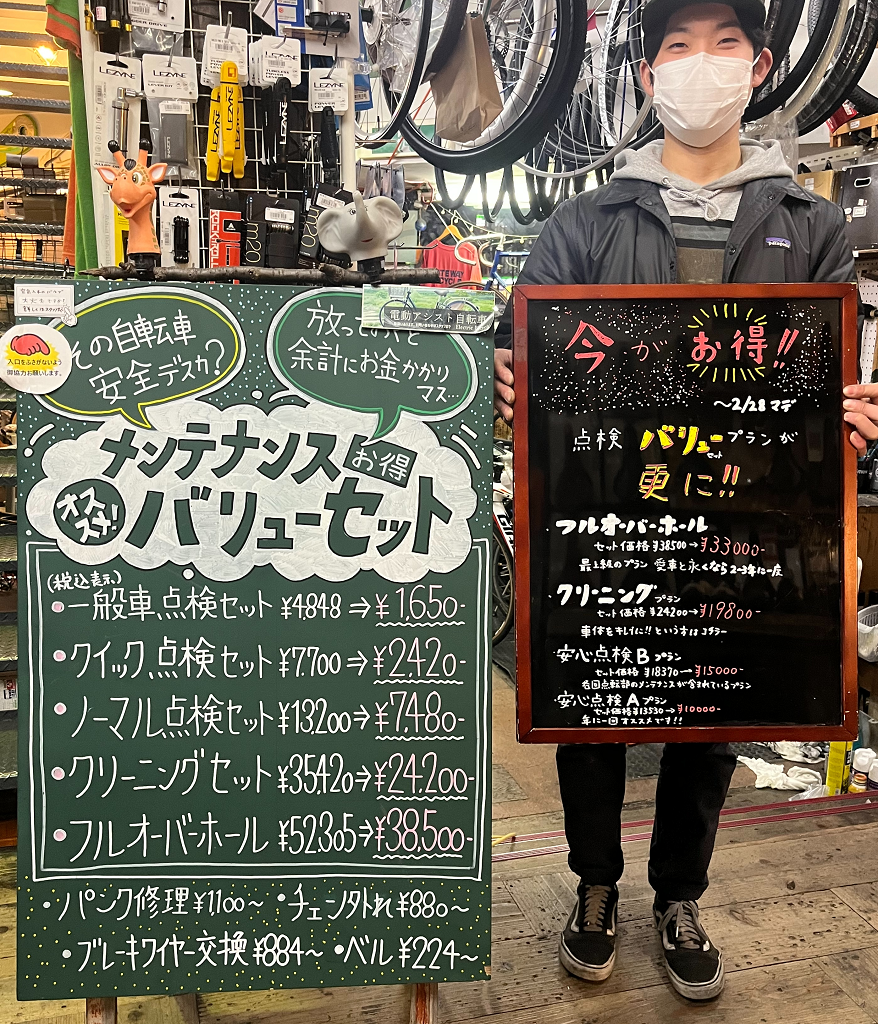 LEZYNE
LEZYNE
LEZYNE
LEZYNE
LEZYNE
LEZYNE
m20
m20
patagonia
電動アシスト自転車
入口をふさがないよう
御協力お願いします。
その自転車
安全デスカ?
放っ
余計にお金かかり
マス...
メンテナンス お得
オススメ! バリューセット
(税込表示)
・一般車点検セット ¥4,848⇒¥1,650-
・クイック点検セット ¥7,700⇒¥2,420-
・ノーマル点検セット ¥13,200⇒¥7,480-
・クリーニングセット ¥35,420⇒¥24,200-
・フルオーバーホール ¥52,305⇒¥38,500-
・パンク修理 ¥1,100〜 ・チェーン外れ ¥880〜
・ブレーキワイヤー交換 ¥884〜 ・ベル ¥224〜
今が お得!!
〜2/28マデ
点検 バリューセットプランが
更に!!
・フルオーバーホール
セット価格 ¥38500→¥33000-
最上級のプラン 愛車と永くなら2〜3年に一度
・クリーニングプラン
セット価格 ¥24200→¥19800-
車体をキレイに!!という方はコチラー
・安心点検Bプラン
セット価格 ¥18370→¥15000-
各回転部のメンテナンスが含まれているプラン
・安心点検Aプラン
セット価格¥13530→¥10000-
年に一回オススメです!!